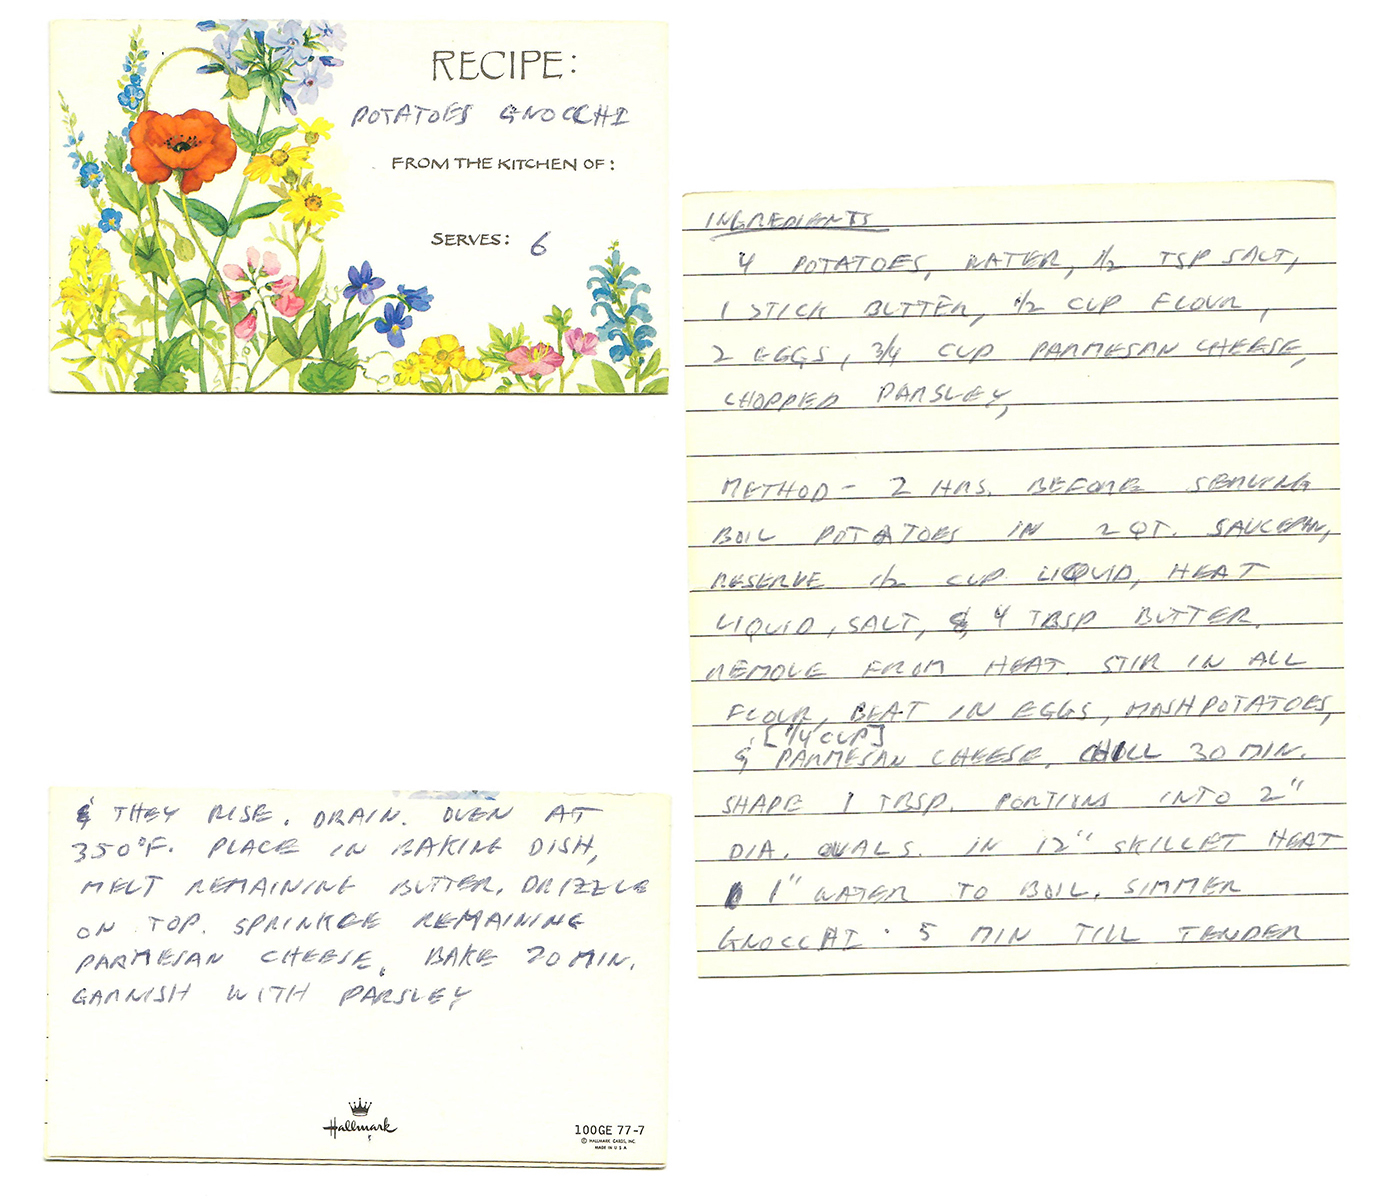 RECIPE:
POTATOES GNOCCHI
FROM THE KITCHEN OF:
SERVES: 6
INGREDIENTS
4 POTATOES, WATER, 1/2 TSP SALT,
1 STICK BUTTER, 1/2 CUP FLOUR,
2 EGGS, 3/4 CUP PARMESAN CHEESE,
CHOPPED PARSLEY,
METHOD - 2 HRS. BEFORE SERVING
BOIL POTATOES IN 2 QT. SAUCEPAN,
RESERVE 1/2 CUP LIQUID, HEAT
LIQUID, SALT, & 4 TBSP BUTTER.
REMOVE FROM HEAT. STIR IN ALL
FLOUR, BEAT IN EGGS, MASH POTATOES,
[1/4 CUP]
& PARMESAN CHEESE, CHILL 30 MIN.
SHAPE 1 TBSP. PORTIONS INTO 2"
DIA. OVALS. IN 12" SKILLET HEAT
1" WATER TO BOIL. SIMMER
GNOCCHI · 5 MIN TILL TENDER
& THEY RISE. DRAIN. OVEN AT
350°F. PLACE IN BAKING DISH,
MELT REMAINING BUTTER. DRIZZLE
ON TOP. SPRINKLE REMAINING
PARMESAN CHEESE. BAKE 20 MIN.
GARNISH WITH PARSLEY
Hallmark
100GE 77-7
© HALLMARK CARDS, INC.
MADE IN U S A